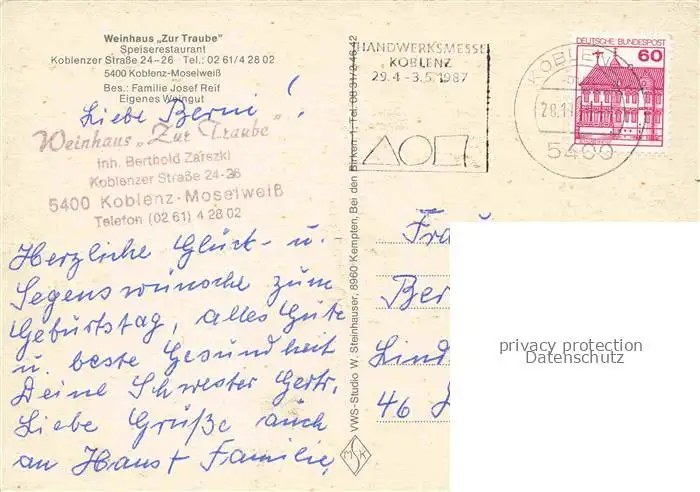 Weinhaus „Zur Traube"
Speiserestaurant
Koblenzer Straße 24–26 Tel.: 02 61/4 28 02
5400 Koblenz-Moselweiß
Bes.: Familie Josef Reif
Eigenes Weingut
Liebe Berni!
Weinhaus „Zur Traube"
Inh. Berthold Zarezki
Koblenzer Straße 24-26
5400 Koblenz-Moselweiß
Telefon (02 61) 4 28 02
Herzliche Glück- u.
Segenswünsche zum
Geburtstag, alles Gute
u. beste Gesundheit
Deine Schwester Gertr.
Liebe Grüße auch
an Hans + Familie,
VWS-Studio W. Steinhauser, 8960 Kempten, Bei den Birken 1, Tel. 08 31/2 46 42
MSK
HANDWERKSMESSE
KOBLENZ
29.4 - 3.5 1987
KOBLEN
28.1
5400
DEUTSCHE BUNDESPOST
60
Frau
Ber
Lind
46
privacy protection
Datenschutz